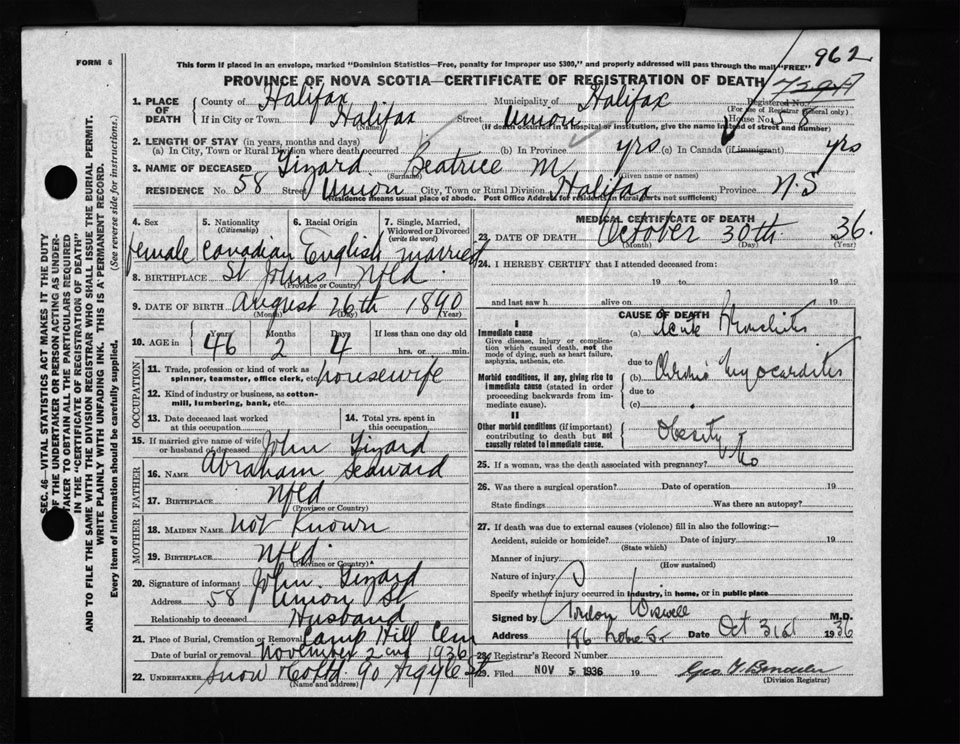 FORM 6
This form if placed in an envelope, marked "Dominion Statistics—Free, penalty for improper use $300," and properly addressed will pass through the mail "FREE"
962
PROVINCE OF NOVA SCOTIA—CERTIFICATE OF REGISTRATION OF DEATH
1. PLACE OF DEATH
County of Halifax Municipality of Halifax Registered No.
(For use of Registrar General only)
If in City or Town Halifax Street Union House No. 58
(Name) (If death occurred in a hospital or institution, give the name instead of street and number)
2. LENGTH OF STAY (in years, months and days)
(a) In City, Town or Rural Division where death occurred (b) In Province yrs (c) In Canada (if immigrant) yrs
3. NAME OF DECEASED Tizard Beatrice M
(Surname) (Given name or names)
RESIDENCE No. 58 Street Union City, Town or Rural Division Halifax Province N.S
(Residence means usual place of abode. Post Office Address for residents in Rural parts not sufficient)
4. Sex 5. Nationality (Citizenship) 6. Racial Origin 7. Single, Married, Widowed or Divorced (write the word)
female Canadian English married
8. BIRTHPLACE St Johns Nfld
(Province or Country)
9. DATE OF BIRTH August 26th 1890
(Month) (Day) (Year)
10. AGE in Years Months Days If less than one day old
46 2 4 hrs. or min.
OCCUPATION
11. Trade, profession or kind of work as spinner, teamster, office clerk, etc. housewife
12. Kind of industry or business, as cotton-mill, lumbering, bank, etc.
13. Date deceased last worked at this occupation
14. Total yrs. spent in this occupation
15. If married give name of wife or husband of deceased John Tizard
FATHER
16. NAME Abraham Seaward
17. BIRTHPLACE Nfld
(Province or Country)
MOTHER
18. MAIDEN NAME not known
19. BIRTHPLACE Nfld
(Province or Country)
20. Signature of informant John Tizard
Address 58 Union St
Relationship to deceased Husband
21. Place of Burial, Cremation or Removal Camp Hill Cem
Date of burial or removal November 2nd 1936
22. UNDERTAKER Snow Co Ltd 90 Argyle St
(Name and address)
MEDICAL CERTIFICATE OF DEATH
23. DATE OF DEATH October 30th 1936.
(Month) (Day) (Year)
24. I HEREBY CERTIFY that I attended deceased from:
19 to 19
and last saw h alive on 19
CAUSE OF DEATH
I
Immediate cause
Give disease, injury or complication which caused death, not the mode of dying, such as heart failure, asphyxia, asthenia, etc.
(a) Acute Bronchitis
due to
Morbid conditions, if any, giving rise to immediate cause (stated in order proceeding backwards from immediate cause).
(b) Chronic Myocarditis
due to
(c)
II
Other morbid conditions (if important) contributing to death but not causally related to immediate cause.
Obesity
25. If a woman, was the death associated with pregnancy? No
26. Was there a surgical operation? Date of operation 19
State findings Was there an autopsy?
27. If death was due to external causes (violence) fill in also the following:—
Accident, suicide or homicide? Date of injury 19
(State which)
Manner of injury
(How sustained)
Nature of injury
Specify whether injury occurred in industry, in home, or in public place
Signed by Gordon Wiswell M.D.
Address Date Oct 31st 1936
28. Registrar's Record Number
29. Filed NOV 5 1936 19
(Division Registrar)
SEC. 46—VITAL STATISTICS ACT MAKES IT THE DUTY OF THE UNDERTAKER OR PERSON ACTING AS UNDERTAKER TO OBTAIN ALL THE PARTICULARS REQUIRED IN THE "CERTIFICATE OF REGISTRATION OF DEATH"
AND TO FILE THE SAME WITH THE DIVISION REGISTRAR WHO SHALL ISSUE THE BURIAL PERMIT.
WRITE PLAINLY WITH UNFADING INK. THIS IS A PERMANENT RECORD.
Every item of information should be carefully supplied. (See reverse side for instructions.)